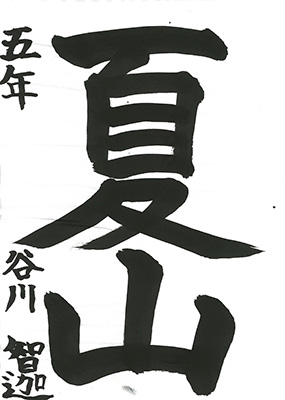 夏山
五年
谷川 智迦